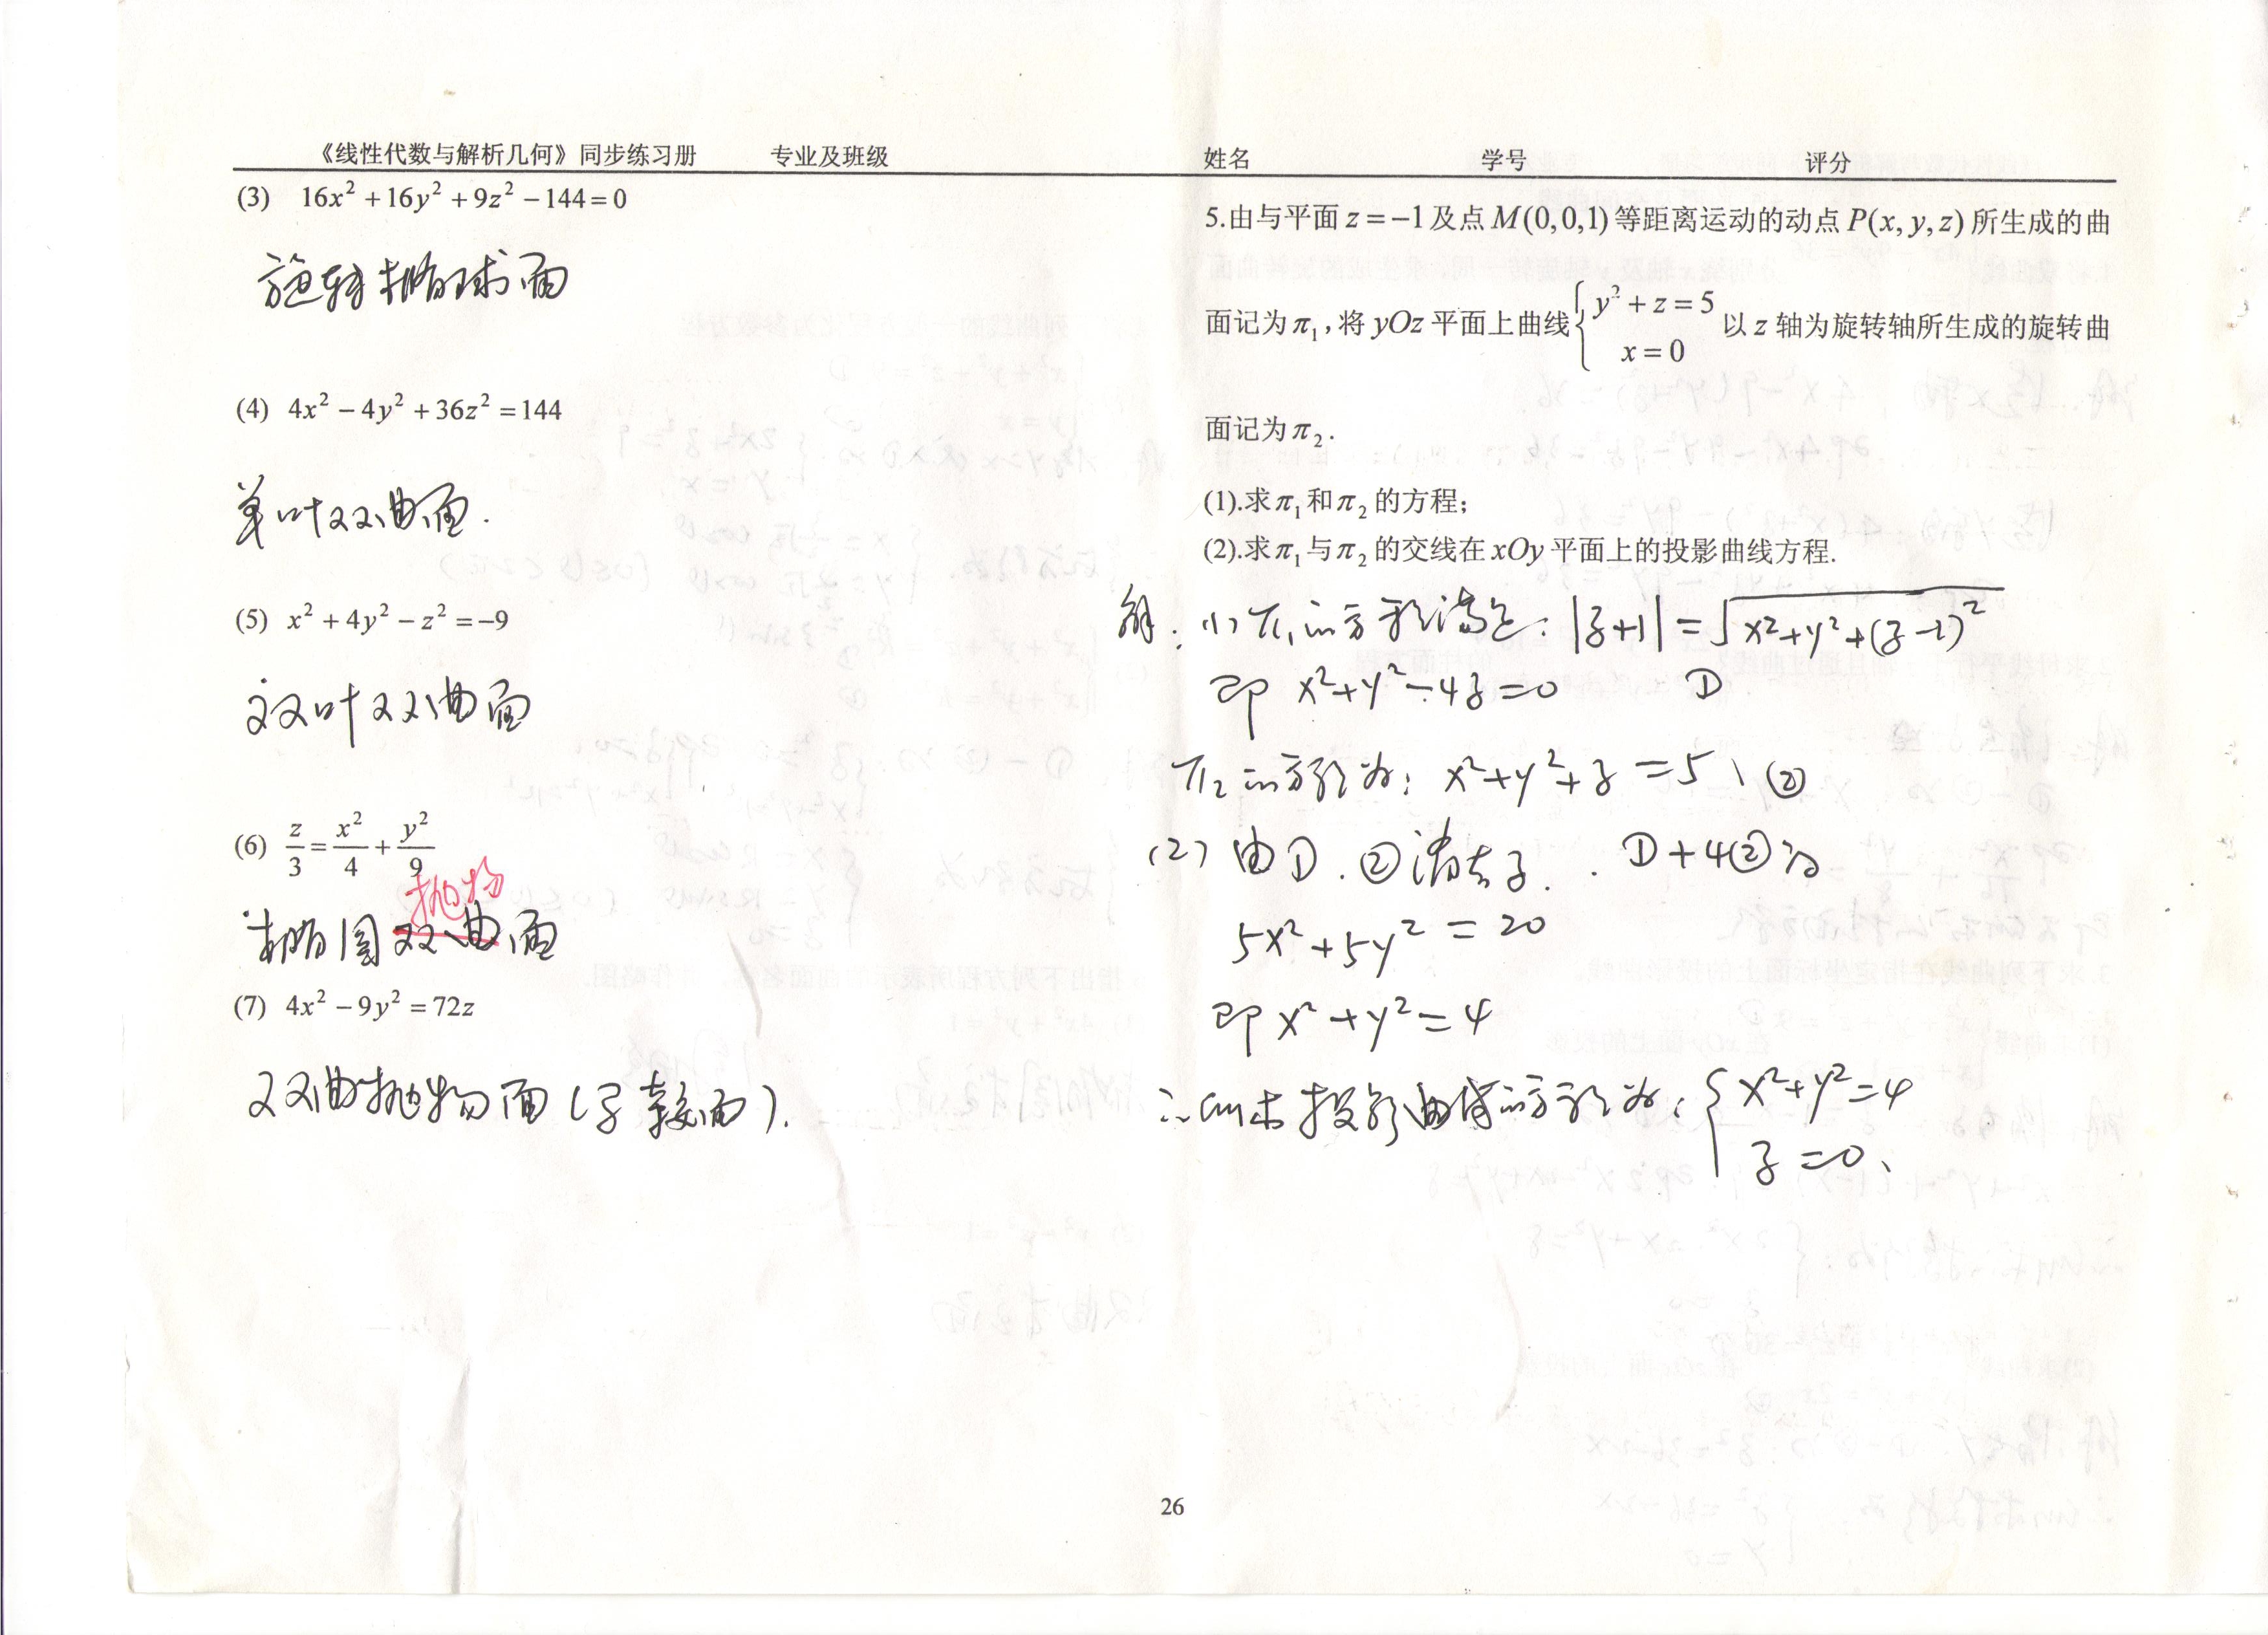 《线性代数与解析几何》同步练习册 专业及班级 姓名 学号 评分
(3) 16x² + 16y² + 9z² − 144 = 0
旋转椭球面
(4) 4x² − 4y² + 36z² = 144
单叶双曲面.
(5) x² + 4y² − z² = −9
双叶双曲面
(6) z/3 = x²/4 + y²/9
抛物
椭圆双曲面
(7) 4x² − 9y² = 72z
双曲抛物面(马鞍面).
5.由与平面 z = −1 及点 M(0,0,1) 等距离运动的动点 P(x, y, z) 所生成的曲
面记为 π₁, 将 yOz 平面上曲线 { y² + z = 5
x = 0 以 z 轴为旋转轴所生成的旋转曲
面记为 π₂.
(1).求 π₁ 和 π₂ 的方程;
(2).求 π₁ 与 π₂ 的交线在 xOy 平面上的投影曲线方程.
解: (1) π₁的方程满足: |z+1| = √(x²+y²+(z−1)²)
即 x²+y²−4z=0 ①
π₂的方程为: x²+y²+z=5、②
(2) 由①.②消去z. ①+4②得
5x²+5y² = 20
即 x²+y²=4
∴所求投影曲线的方程为: { x²+y²=4
z=0、
26